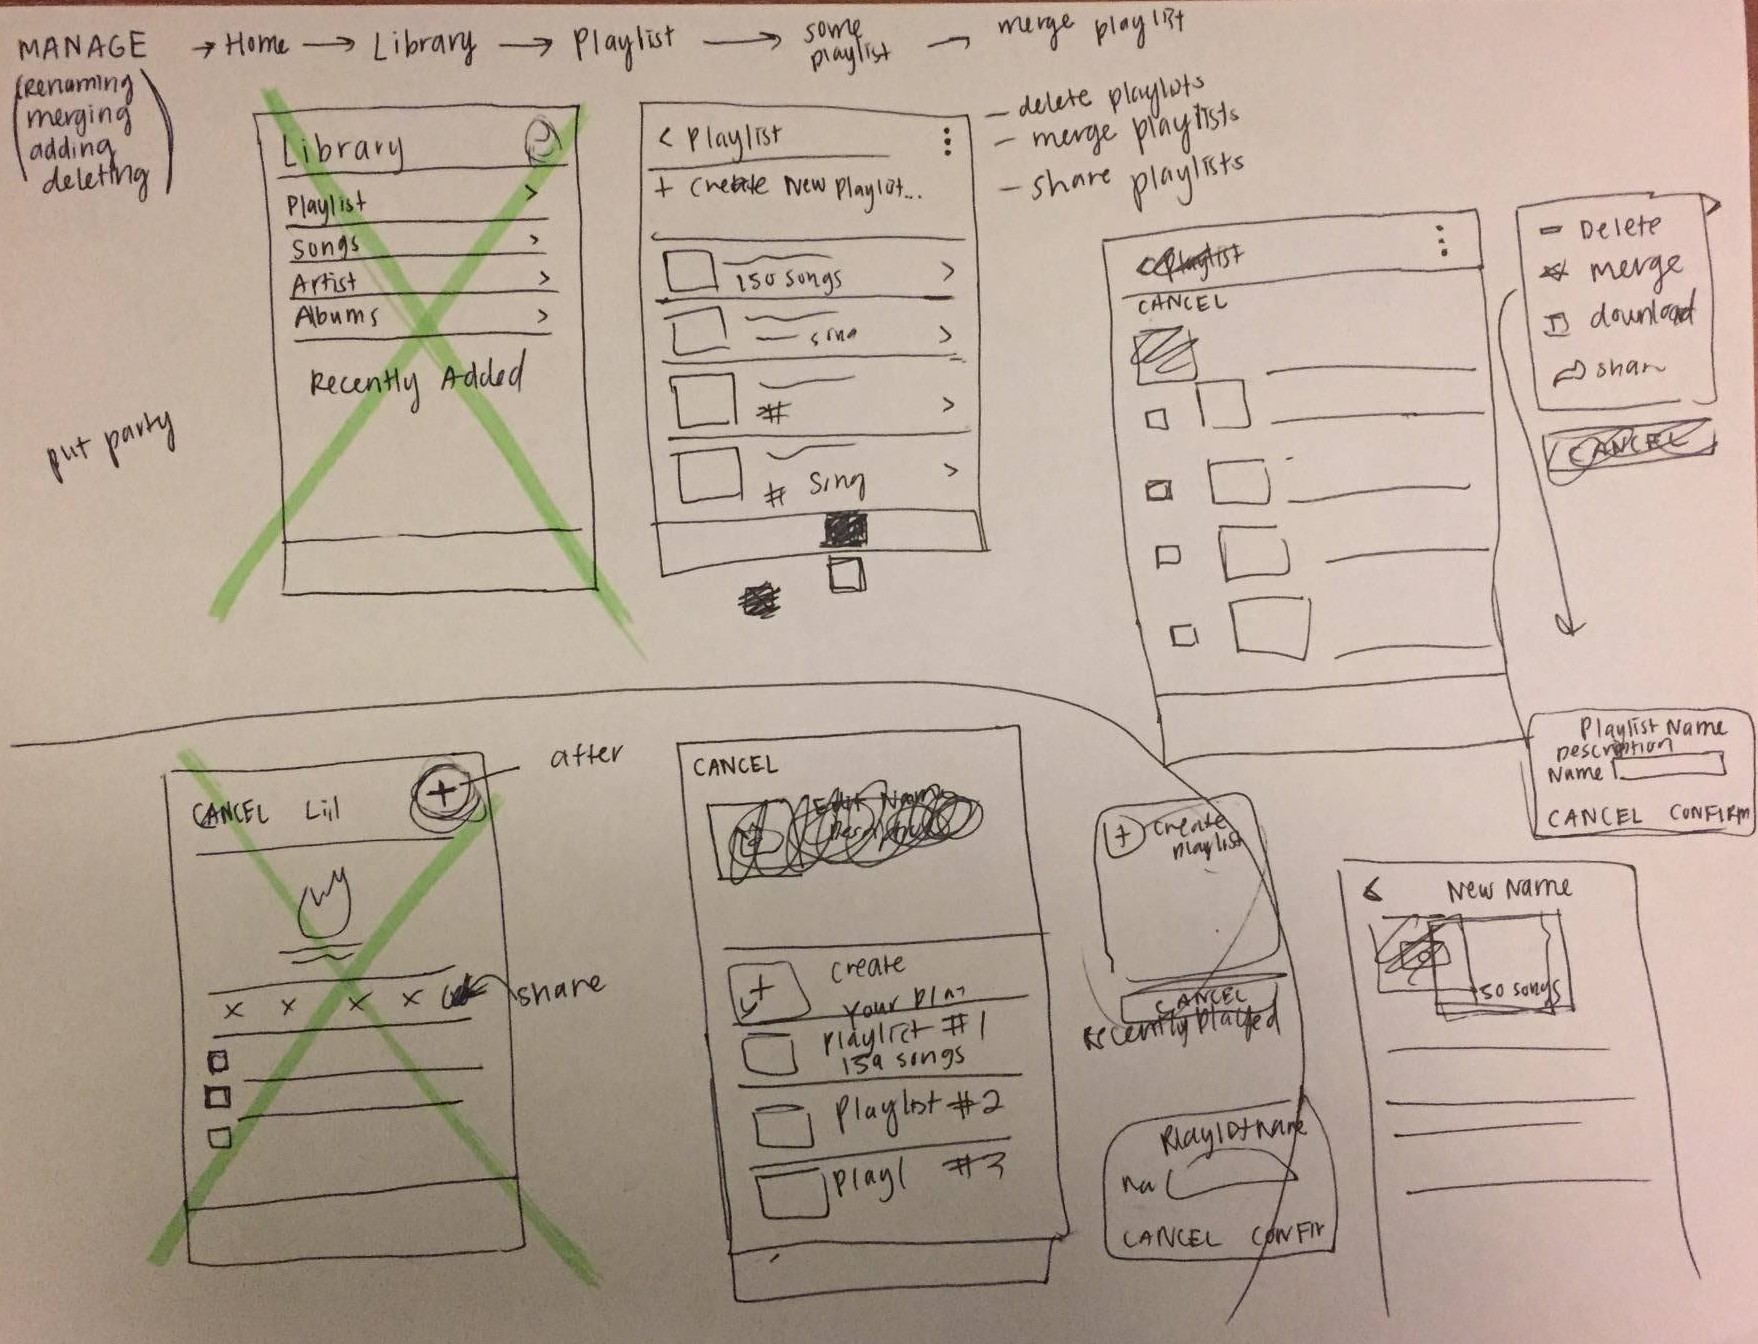 MANAGE → Home → Library → Playlist → some playlist → merge playlist
(Renaming
merging
adding
deleting)
put party
Library
Playlist >
Songs >
Artist >
Albums >
Recently Added
< Playlist
+ Create New Playlist...
150 songs >
>
# >
# Sing >
- delete playlists
- merge playlists
- share playlists
< Playlist
CANCEL
Delete
merge
download
share
CANCEL
Playlist Name
Description
Name
CANCEL CONFIRM
after
CANCEL Lil +
x x x x
share
CANCEL
Edit Name
+ Create
your
Playlist #1
159 songs
Playlist #2
Playl #3
+ Create
playlist
CANCEL
Recently played
Playlist Name
na
CANCEL CONFIR
< New Name
50 songs